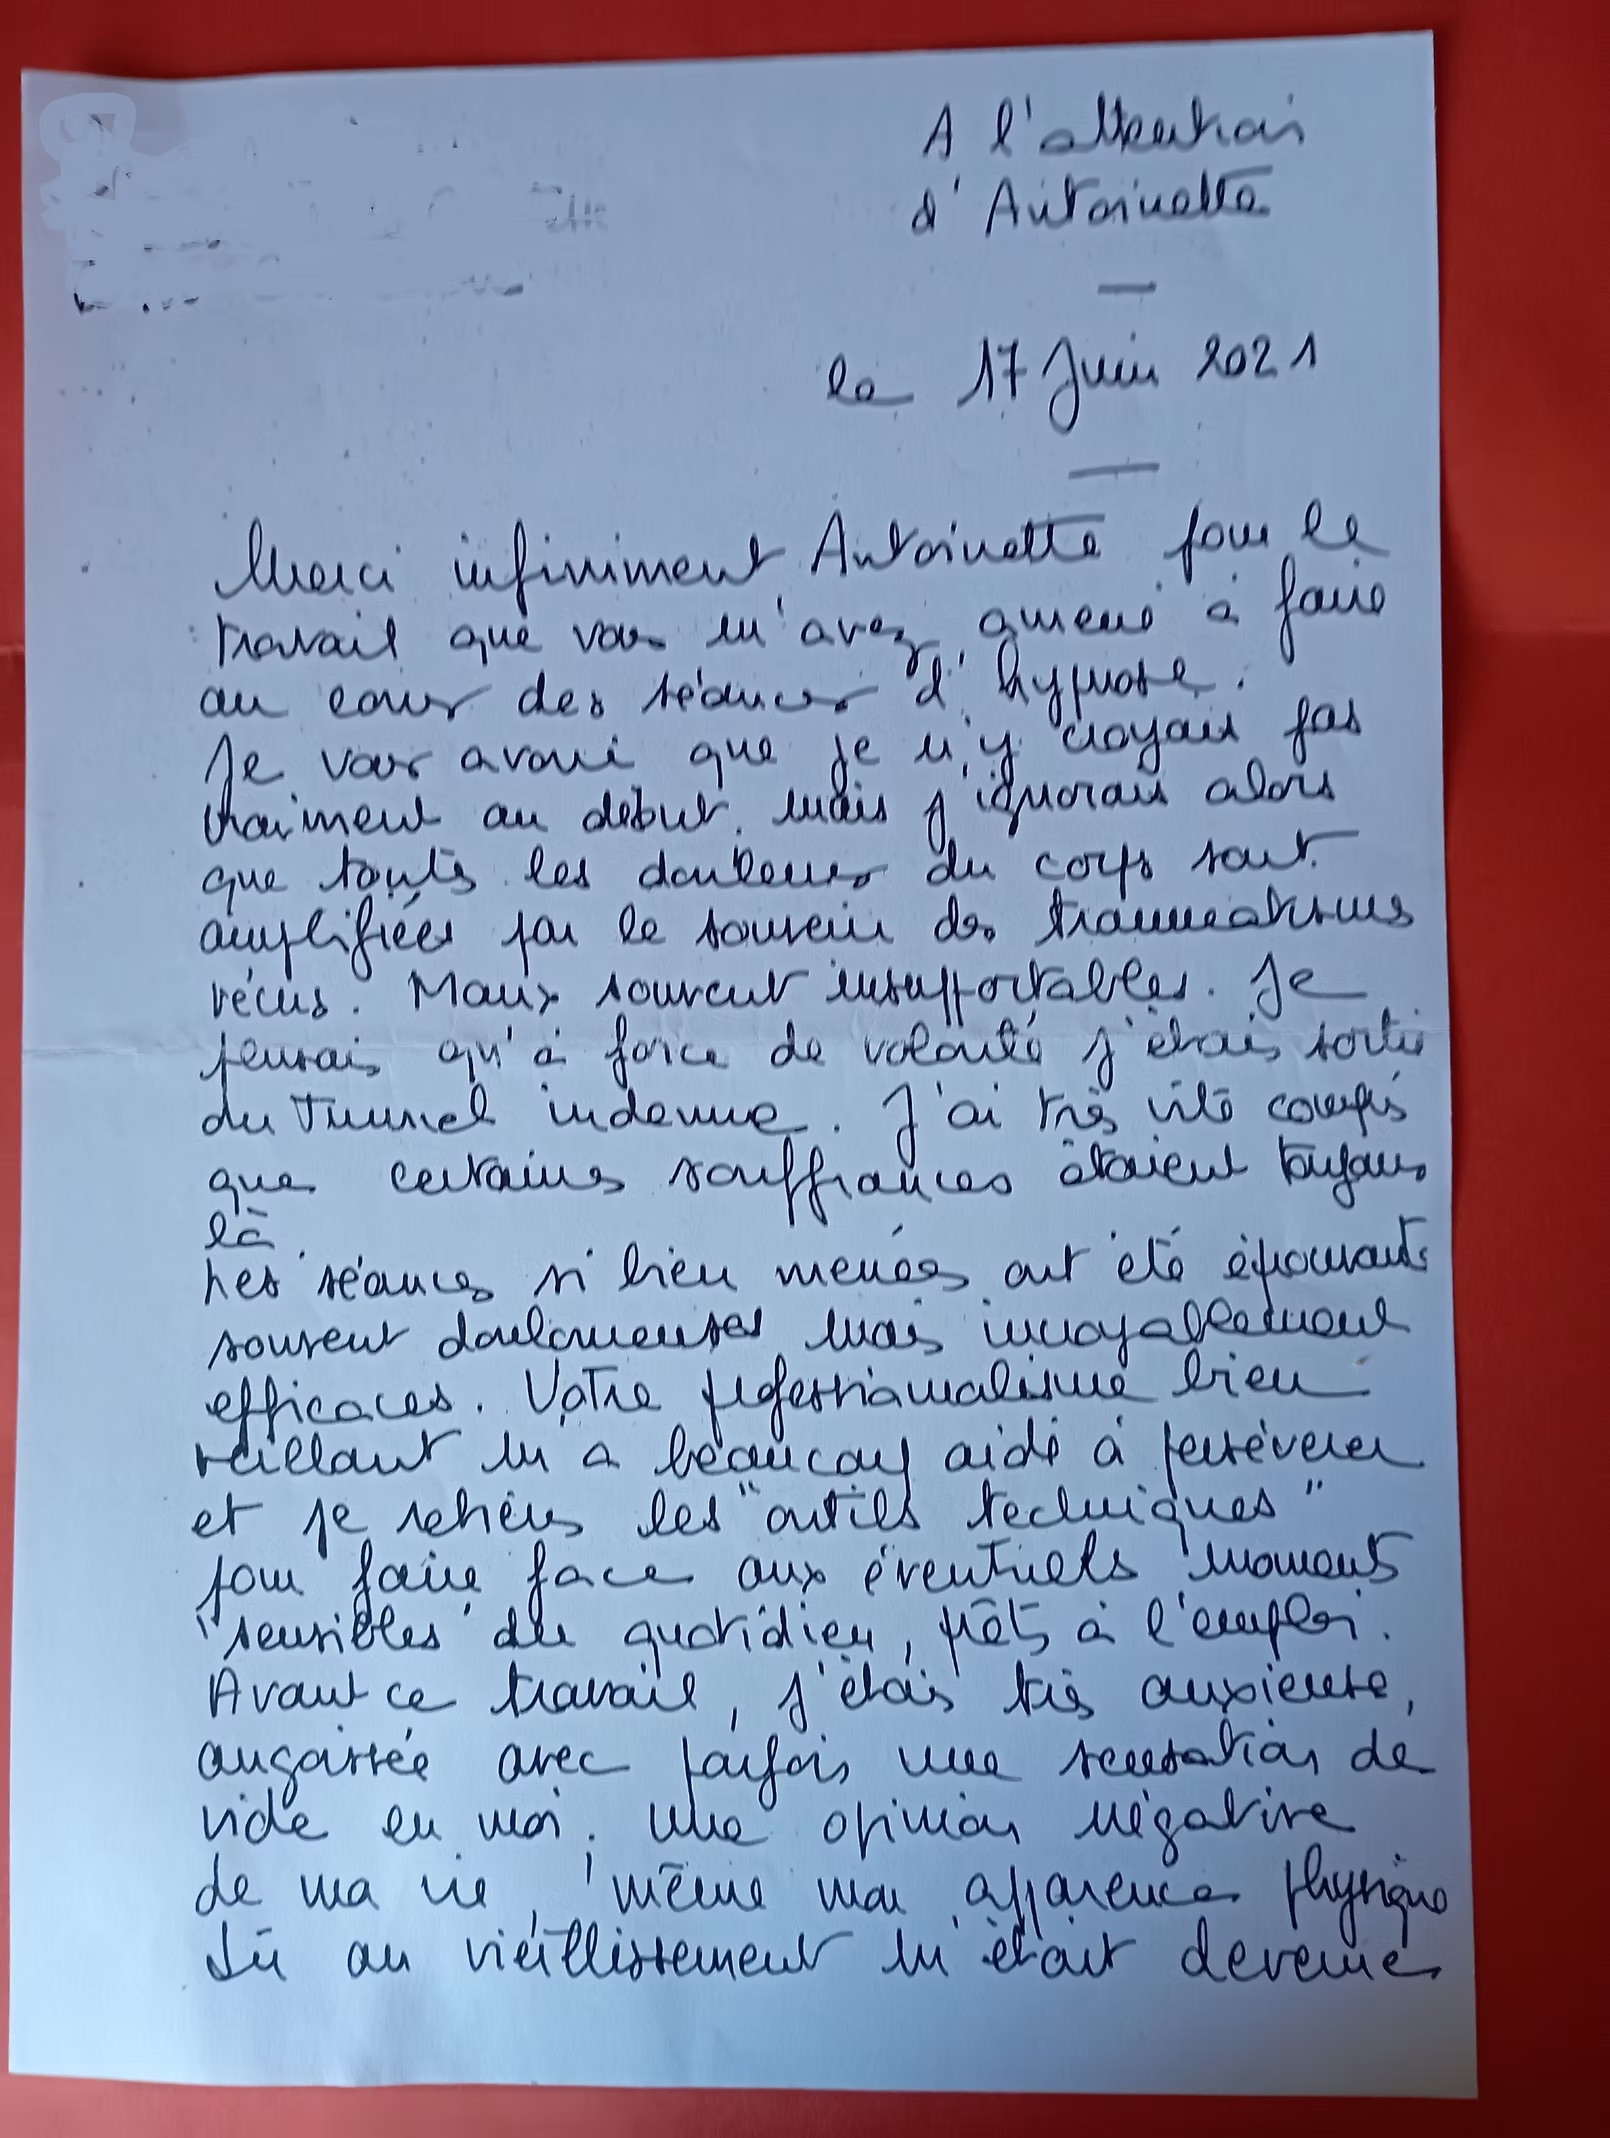 A l'attention
d'Antoinette
le 17 Juin 2021
Merci infiniment Antoinette pour le
travail que vous m'avez amené à faire
au cour des séances d'hypnose.
Je vous avoue que je n'y croyais pas
vraiment au début. mais j'ignorais alors
que toutes les douleurs du corps sont
amplifiées par le souvenir des traumatismes
vécus. Maux souvent insupportables. Je
pensais qu'à force de volonté j'étais sortie
du Tunnel indemne. J'ai très vite compris
que certaines souffrances étaient toujours
là.
Les séances si bien menées ont été éprouvants
souvent douloureuses mais incroyablement
efficaces. Votre professionnalisme bien
veillant m'a beaucoup aidé à persévérer
et je retiens les "outils techniques"
pour faire face aux éventuels moments
"sensibles" du quotidien, prêts à l'emploi.
Avant ce travail, j'étais très anxieuse,
angoissée avec parfois une sensation de
vide en moi. une opinion négative
de ma vie, même mon apparence physique
dû au vieillissement m'était devenue